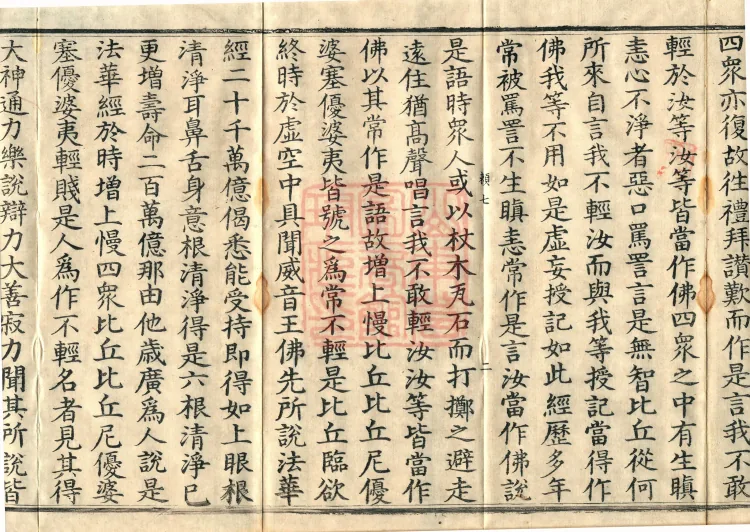 四衆亦復故往禮拜讚歎而作是言我不敢
輕於汝等汝等皆當作佛四衆之中有生瞋
恚心不淨者惡口罵詈言是無智比丘從何
所來自言我不輕汝而與我等授記當得作
佛我等不用如是虛妄授記如此經歷多年
常被罵詈不生瞋恚常作是言汝當作佛說
頼七 二
是語時衆人或以杖木瓦石而打擲之避走
遠住猶髙聲唱言我不敢輕汝汝等皆當作
佛以其常作是語故增上慢比丘比丘尼優
婆塞優婆夷皆號之爲常不輕是比丘臨欲
終時於虛空中具聞威音王佛先所說法華
經二十千萬億偈悉能受持即得如上眼根
清淨耳鼻舌身意根清淨得是六根清淨已
更增壽命二百萬億那由他歳廣爲人說是
法華經於時增上慢四衆比丘比丘尼優婆
塞優婆夷輕賤是人爲作不輕名者見其得
大神通力樂說辯力大善寂力聞其所說皆